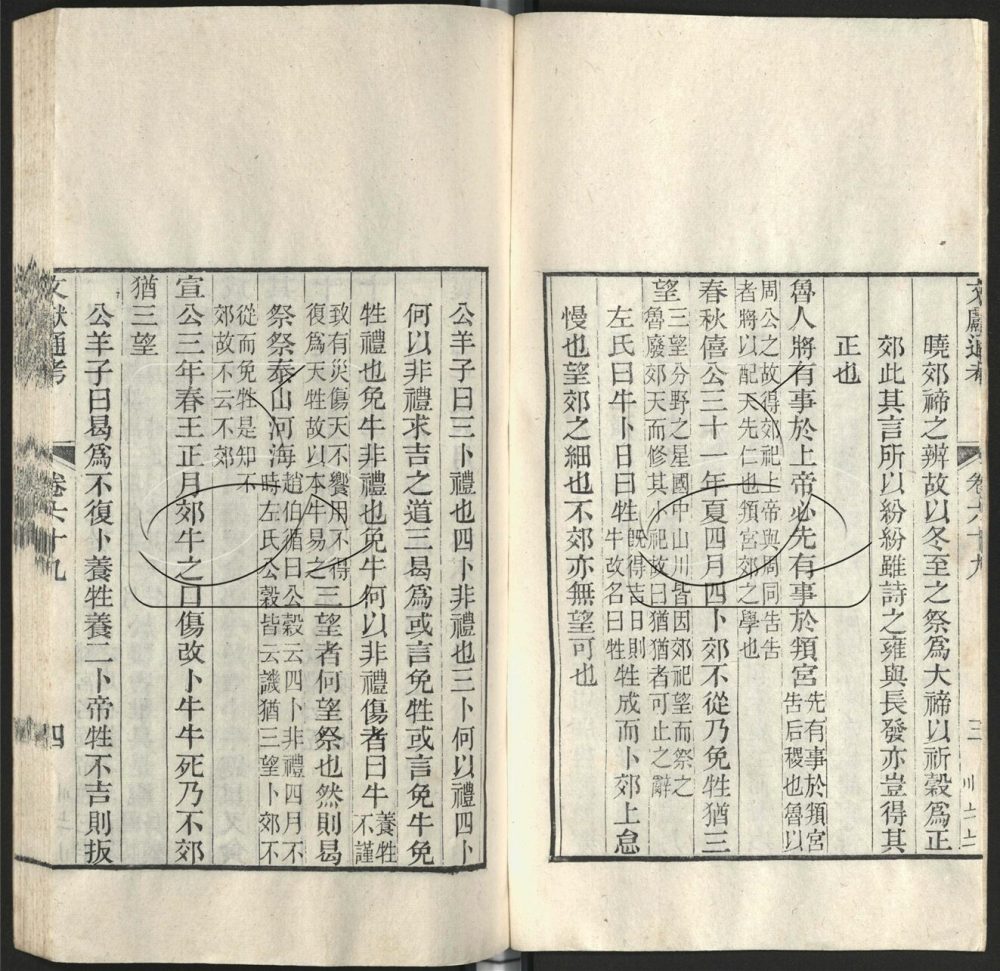 文獻通考 卷六十九 三
曉郊禘之辨故以冬至之祭爲大禘以祈穀爲正
郊此其言所以紛紛雖詩之雍與長發亦豈得其
正也
魯人將有事於上帝必先有事於頖宮先有事於頖宮
告后稷也魯以
周公之故得郊祀上帝與周同告告
者將以配天先仁也頖宮郊之學也
春秋僖公三十一年夏四月四卜郊不從乃免牲猶三
望三望分野之星國中山川皆因郊祀望而祭之
魯廢郊天而修其小祀故曰猶猶者可止之辭
左氏曰牛卜日曰牲旣得吉日則
牛改名曰牲牲成而卜郊上怠
慢也望郊之細也不郊亦無望可也
公羊子曰三卜禮也四卜非禮也三卜何以禮四卜
何以非禮求吉之道三曷爲或言免牲或言免牛免
牲禮也免牛非禮也免牛何以非禮傷者曰牛養牲
不謹
致有災傷天不饗用不得
復爲天牲故以本牛易之三望者何望祭也然則曷
祭祭泰山河海趙伯循曰公穀云四卜非禮四月不
時左氏公穀皆云譏猶三望卜郊不
從而免牲是知不
郊故不云不郊
宣公三年春王正月郊牛之口傷改卜牛牛死乃不郊
猶三望
公羊子曰曷爲不復卜養牲養二卜帝牲不吉則扳
文獻通考 卷六十九 四